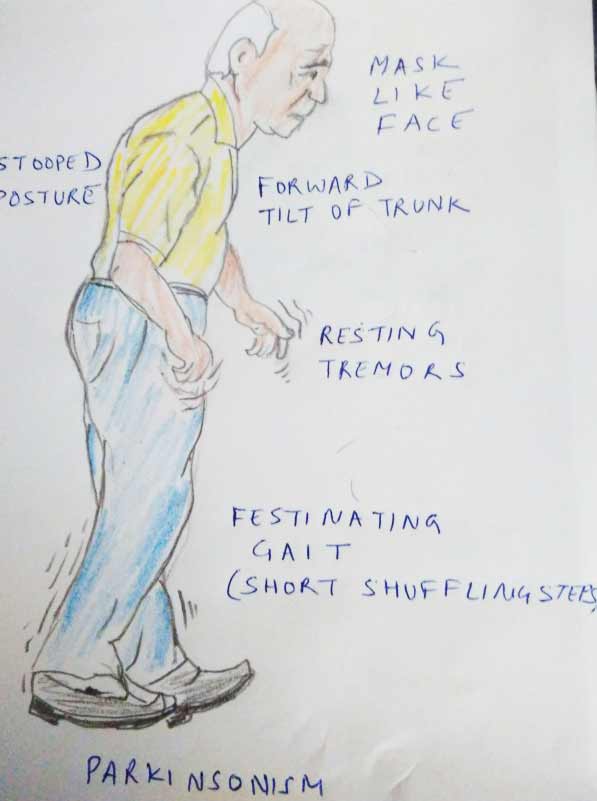 MASK
LIKE
FACE
STOOPED
POSTURE
FORWARD
TILT OF TRUNK
RESTING
TREMORS
FESTINATING
GAIT
(SHORT SHUFFLING STEPS)
PARKINSONISM